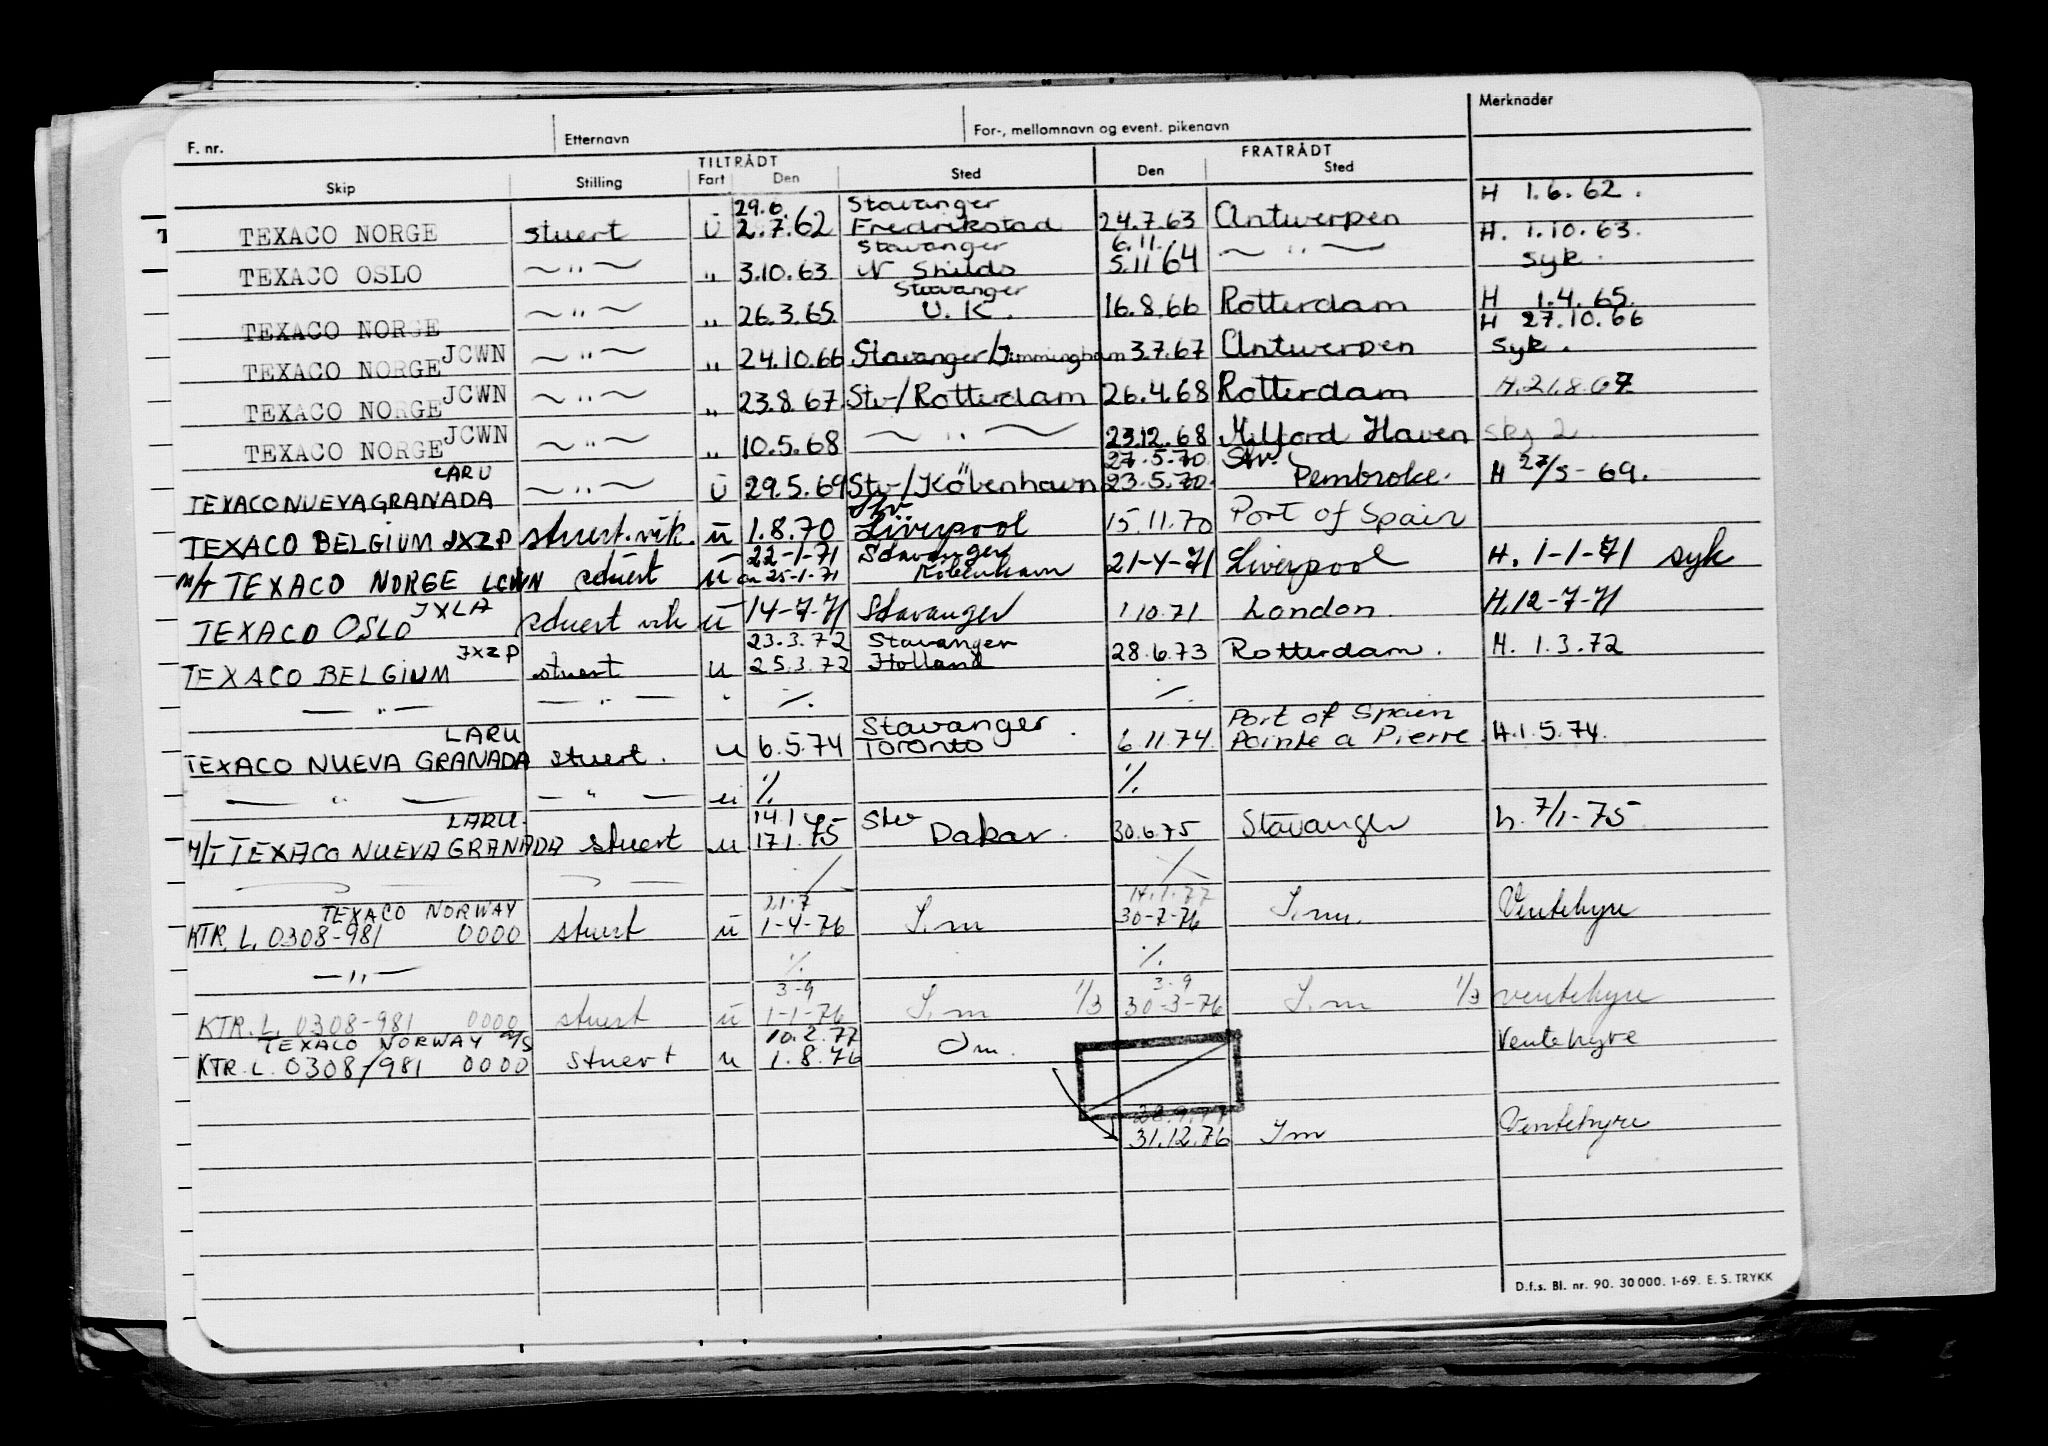 F. nr. Etternavn For-, mellomnavn og event. pikenavn Merknader
TILTRÅDT FRATRÅDT
Skip Stilling Fart Den Sted Den Sted
29.6. Stavanger H 1.6.62.
TEXACO NORGE stuert U 2.7.62 Fredrikstad 24.7.63 Antwerpen
Stavanger 6.11. H. 1.10.63.
TEXACO OSLO ~ " ~ " 3.10.63 N Shilds 5.11 64 ~ " ~ syk.
Stavanger
TEXACO NORGE ~ " ~ " 26.3.65 U.K. 16.8.66 Rotterdam H 1.4.65.
H 27.10.66
TEXACO NORGE JCWN ~ " ~ " 24.10.66 Stavanger/Immingham 3.7.67 Antwerpen syk.
TEXACO NORGE JCWN ~ " ~ " 23.8.67 Stv/Rotterdam 26.4.68 Rotterdam H.21.8.67
TEXACO NORGE JCWN ~ " ~ " 10.5.68 ~ " ~ 23.12.68 Milford Haven
LARU 27.5.70 Stv.
TEXACO NUEVA GRANADA ~ " ~ U 29.5.69 Stv/Köbenhavn 23.5.70 Pembroke. H 27/5-69.
Stv
TEXACO BELGIUM JXZP stuert.vik. u 1.8.70 Liverpool 15.11.70 Port of Spain
22-1-71 Stavanger
M/T TEXACO NORGE LCWN stuert u 25-1-71 København 21-4-71 Liverpool H. 1-1-71 syk
TEXACO OSLO JXLA stuert vik u 14-7-71 Stavanger 1.10.71 London. H.12-7-71
JXZP 23.3.72 Stavanger
TEXACO BELGIUM stuert u 25.3.72 Holland 28.6.73 Rotterdam. H. 1.3.72
— " — — " — " ./. ./.
LARU Stavanger Port of Spain
TEXACO NUEVA GRANADA stuert. u 6.5.74 Toronto 6.11.74 Pointe a Pierre H.1.5.74.
— " — — " — u ./. ./.
LARU. 14.1 Stv
M/T TEXACO NUEVA GRANADA stuert u 17.1.75 Dakar. 30.6.75 Stavanger h. 7/1-75
./. ./.
TEXACO NORWAY 21.7 14.1.77
KTR. L. 0308-981 0000 stuert u 1-4-76 I.m 30-7-76 I.m. Ventehyre
— " — ./. ./.
3-9 3-9
KTR. L. 0308-981 0000 stuert u 1-1-76 I.m 1/3 30-3-76 I.m 1/3 ventehyre
TEXACO NORWAY 10.2.77
KTR. L. 0308/981 0000 stuert u 1.8.76 Om. Ventehyre
28.9.77
31.12.76 Im Ventehyre
D.f.s. Bl. nr. 90. 30 000. 1-69. E. S. TRYKK